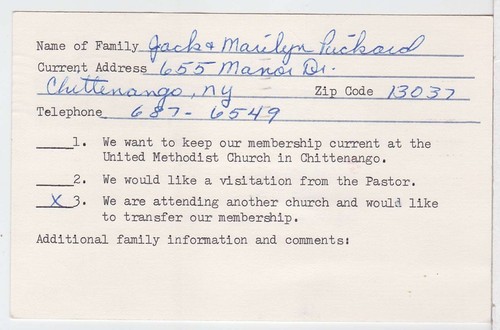 Name of Family Jack & Marilyn Packard
Current Address 655 Manor Dr.
Chittenango, NY Zip Code 13037
Telephone 687-6549
1. We want to keep our membership current at the
United Methodist Church in Chittenango.
2. We would like a visitation from the Pastor.
X 3. We are attending another church and would like
to transfer our membership.
Additional family information and comments: